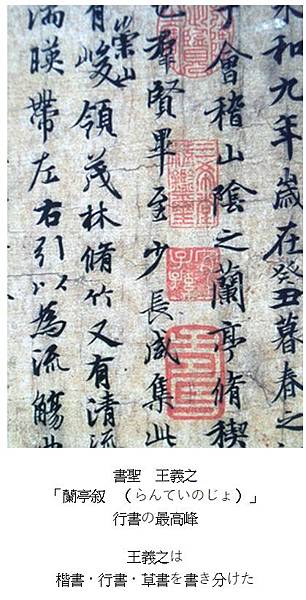 永和九年歲在癸丑暮春之
于會稽山陰之蘭亭脩禊
也羣賢畢至少長咸集此
有崇山峻領茂林脩竹又有清流
湍暎帶左右引以為流觴曲
書聖　王義之
「蘭亭叙　（らんていのじょ）」
行書の最高峰
王義之は
楷書・行書・草書を書き分けた